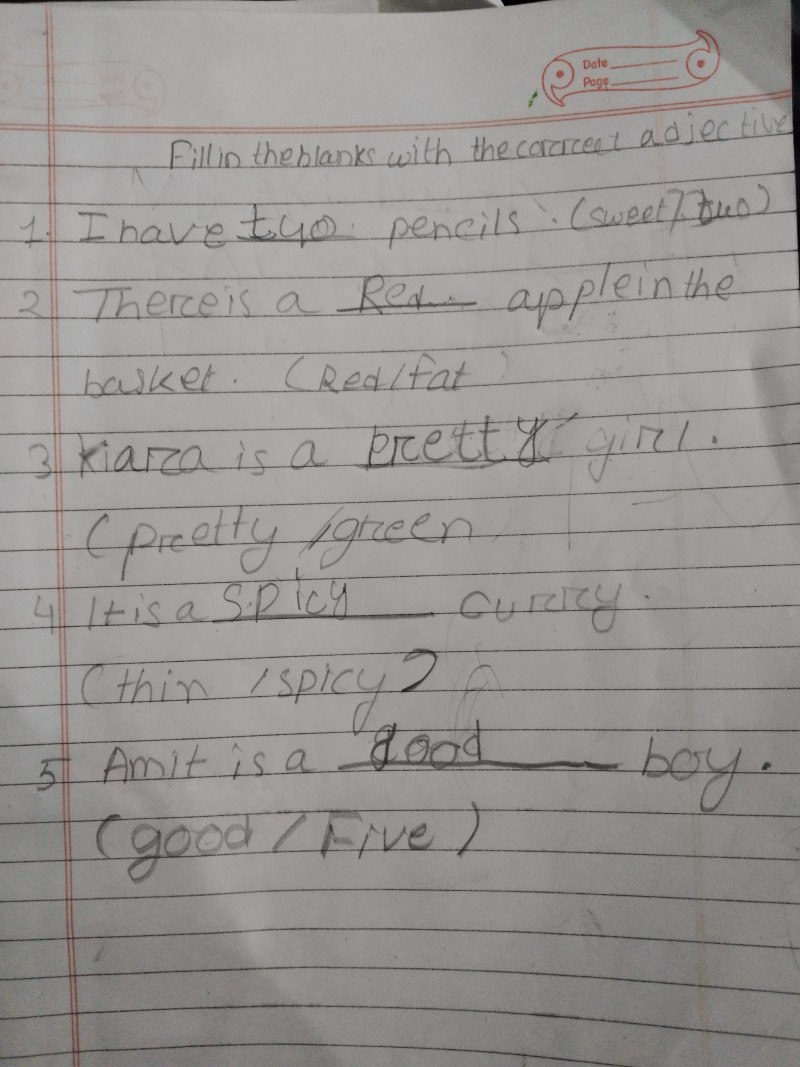 Date
Page
Fill in the blanks with the correct adjective
1. I have two pencils. (sweet/two)
2 There is a Red apple in the
basket. (Red/fat)
3 Kiara is a pretty girl.
(pretty /green
4 It is a spicy curry.
(thin /spicy)
5 Amit is a good boy.
(good / Five)